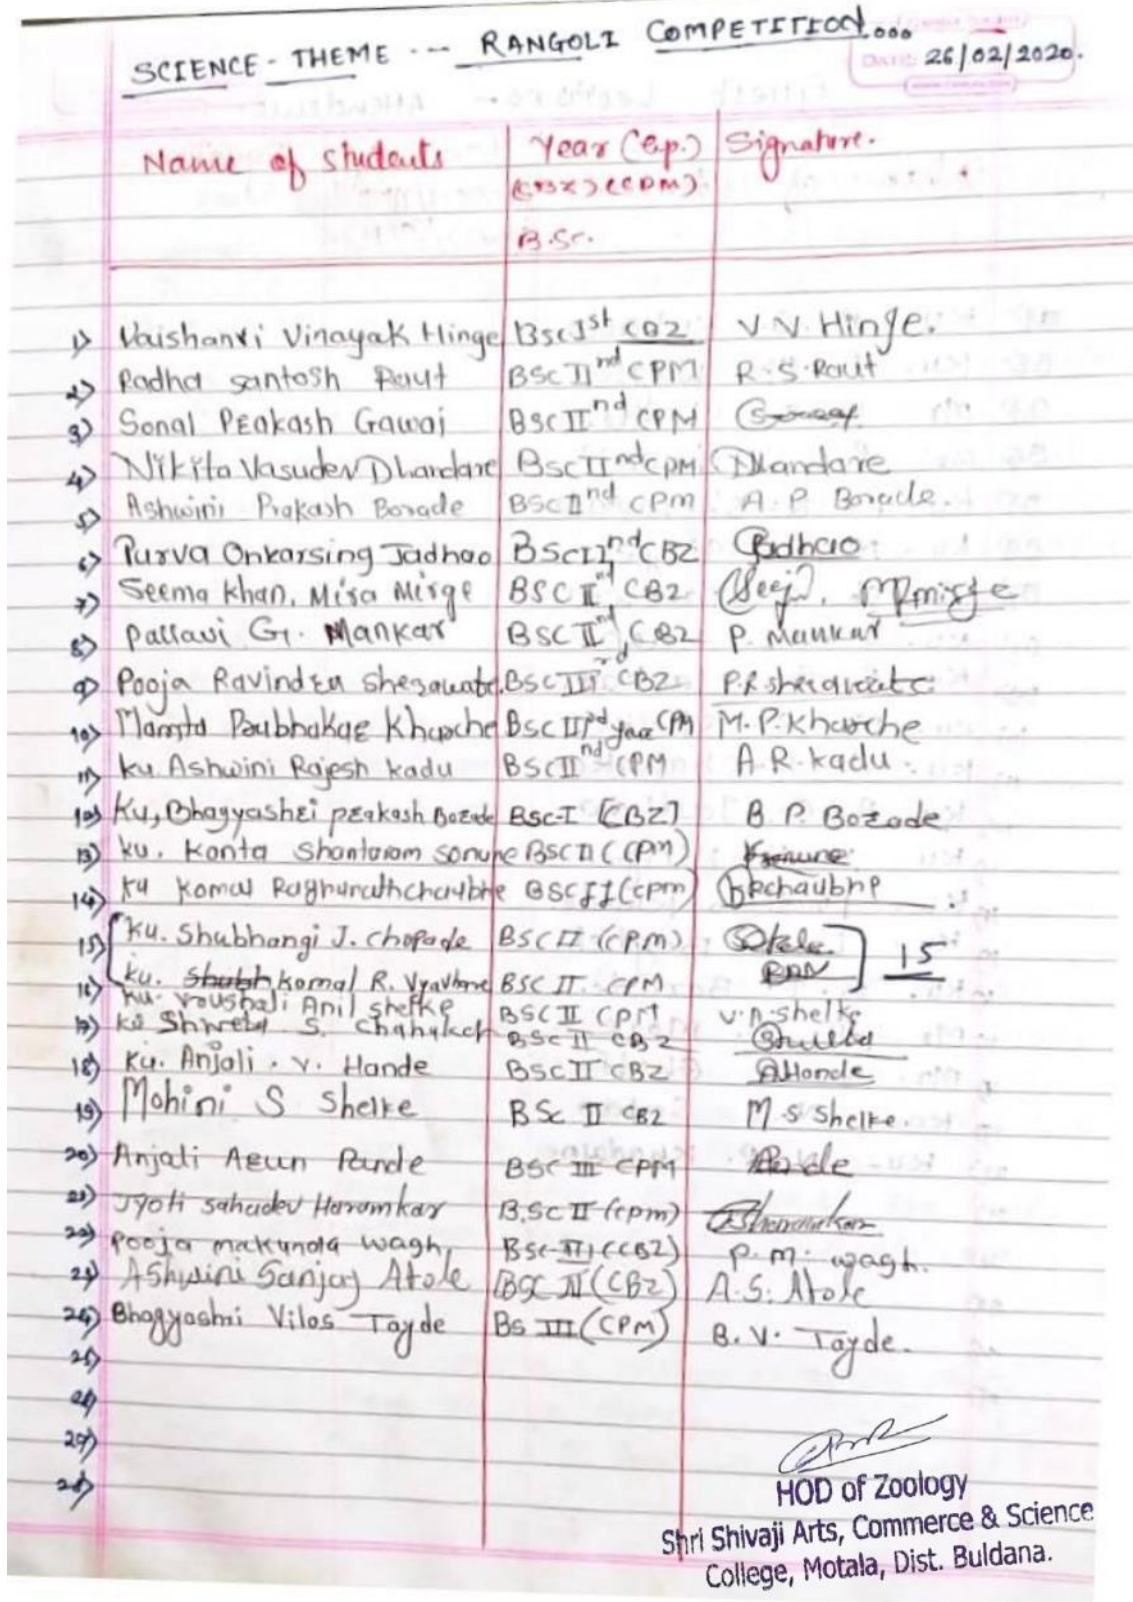 SCIENCE - THEME --- RANGOLI COMPETITION...
DATE: 26/02/2020.
Name of students Year (Gp.) Signature.
(CBZ) (CPM)
B.Sc.
1) Vaishanvi Vinayak Hinge BSc Ist CBZ V V Hinge.
2) Radha santosh Raut BSC IInd CPM R.S.Raut
3) Sonal Prakash Gawai BSC IInd CPM
4) Nikita Vasudev Dhandare BSC IInd CPM Dhandare
5) Ashwini Prakash Borade BSC IInd CPM A. P Borade.
6) Purva Onkarsing Jadhao BSC IInd CBZ Jadhao
7) Seema Khan, Mira Mirge BSC IInd CBZ
8) Pallavi G. Mankar BSC IInd CBZ P. Mankar
9) Pooja Ravindra Sherawate. BSC IIIrd CBZ P.R sherawate
10) Mamta Prabhakar Kharche BSC IIIrd year CPM M.P.Kharche
11) Ku. Ashwini Rajesh Kadu BSC IInd CPM A.R.Kadu.
12) Ku, Bhagyashri prakash Borade BSC-I [CBZ] B. P. Borade
13) Ku. Kanta Shantaram Sonune BSC II (CPM)
14) Ku Komal Raghunath chaubhe BSC II (CPM)
15) Ku. Shubhangi J. Chopade BSC II (CPM)
15
16) Ku. Shubh Komal R. Vyavhare BSC II CPM
Ku. Vaushali Anil Shelke BSC II CPM V.A.Shelke
17) Ku Shweta S. BSC II CBZ
18) Ku. Anjali . V. Hande BSC II CBZ AHande
19) Mohini S Shelke BSC II CBZ M S Shelke.
20) Anjali Arun Pande BSC III CPM Pande
21) Jyoti Sahadev Haramkar B.SC II (CPM)
22) Pooja makunda wagh, BSC-III (CBZ) P. M. wagh.
23) Ashwini Sanjay Atole BSC IV (CBZ) A.S. Atole
24) Bhagyashri Vilas Tayde BS III (CPM) B. V. Tayde.
25)
26)
27)
28)
HOD of Zoology
Shri Shivaji Arts, Commerce & Science
College, Motala, Dist. Buldana.